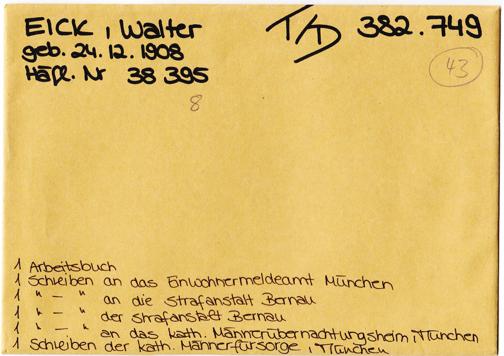 EICK, Walter
T/D 382.749
geb. 24.12.1908
43
Häftl. Nr 38 395
8
1 Arbeitsbuch
1 Schreiben an das Einwohnermeldeamt München
1 " — " an die Strafanstalt Bernau
1 " — " der Strafanstalt Bernau
1 " — " an das kath. Männerübernachtungsheim, München
1 Schreiben der kath. Männerfürsorge, München